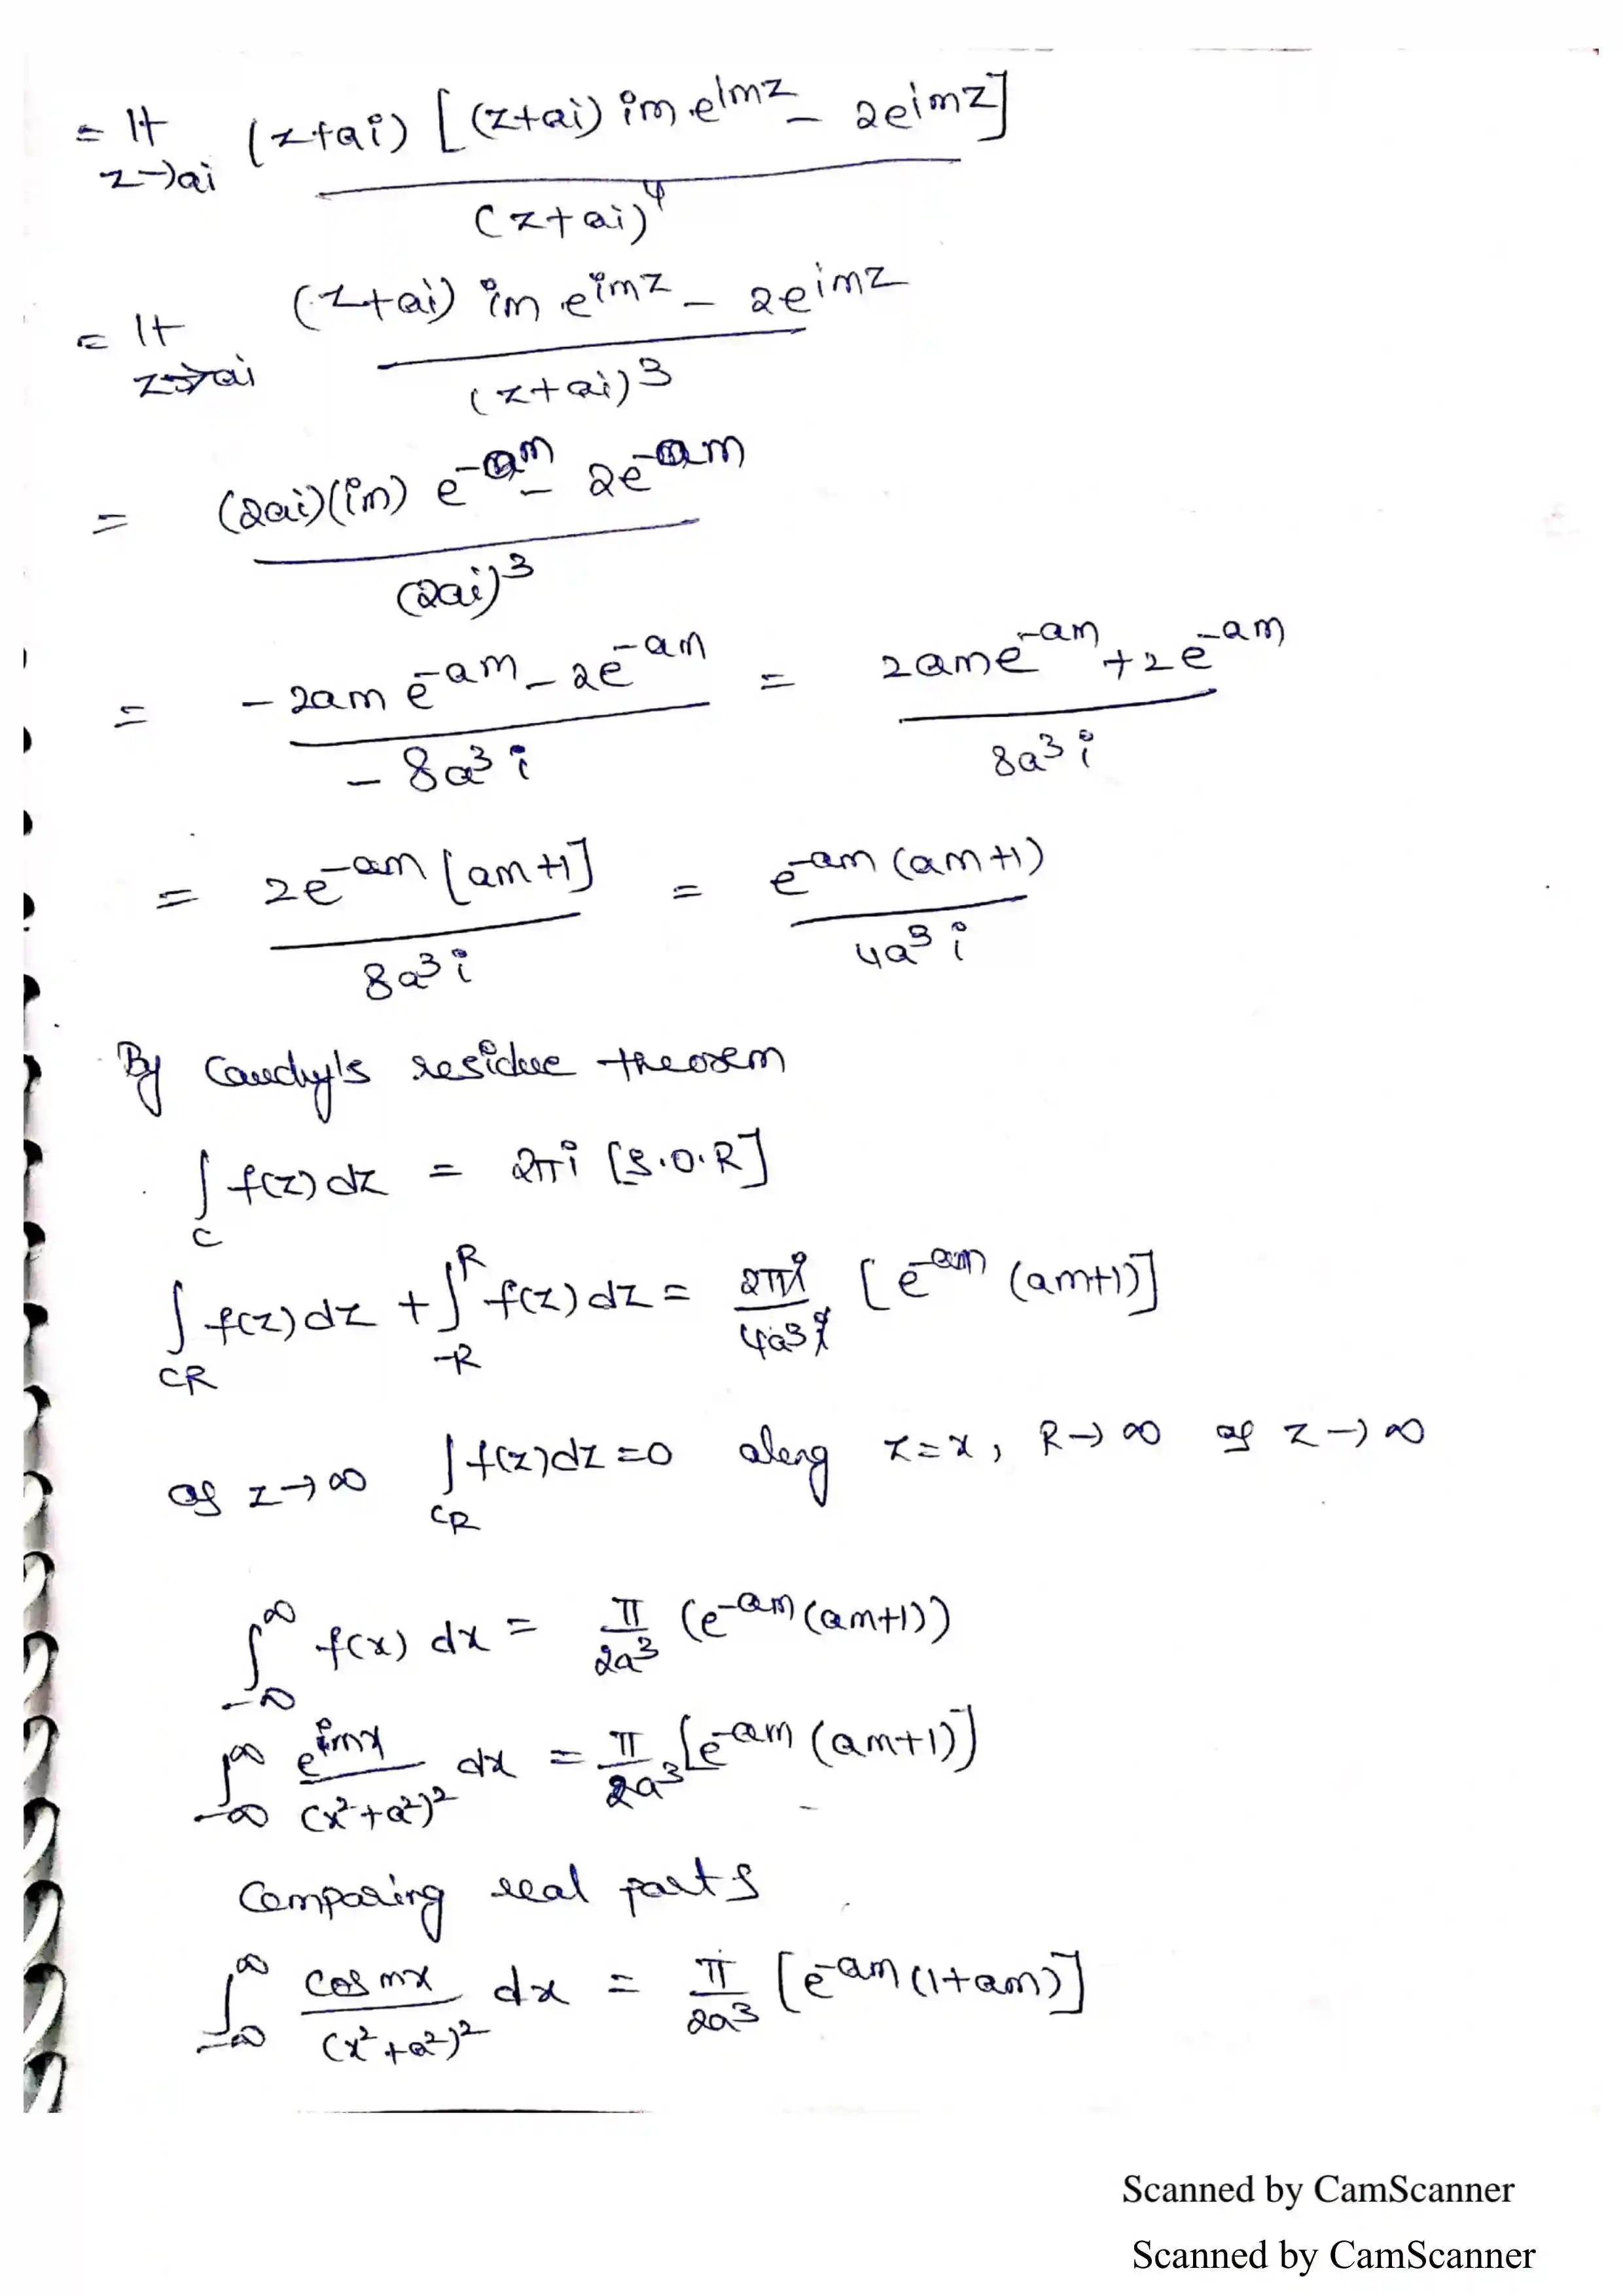 = lt z→ai (z+ai) [(z+ai) im.e^imz - 2e^imz] / (z+ai)^4
= lt z→ai (z+ai) im e^imz - 2e^imz / (z+ai)^3
= (2ai)(im) e^-am - 2e^-am / (2ai)^3
= -2am e^-am - 2e^-am / -8a^3 i = 2ame^-am + 2e^-am / 8a^3 i
= 2e^-am [am+1] / 8a^3 i = e^-am (am+1) / 4a^3 i
By Cauchy's residue theorem
∫_C f(z) dz = 2πi [S.O.R]
∫_CR f(z) dz + ∫_-R^R f(z) dz = 2πi / 4a^3 i [e^-am (am+1)]
as z→∞ ∫_CR f(z)dz = 0 along z=x, R→∞ as z→∞
∫_-∞^∞ f(x) dx = π/2a^3 (e^-am (am+1))
∫_-∞^∞ e^imx / (x^2+a^2)^2 dx = π/2a^3 [e^-am (am+1)]
Comparing real parts
∫_-∞^∞ cos mx / (x^2+a^2)^2 dx = π/2a^3 [e^-am (1+am)]
Scanned by CamScanner
Scanned by CamScanner